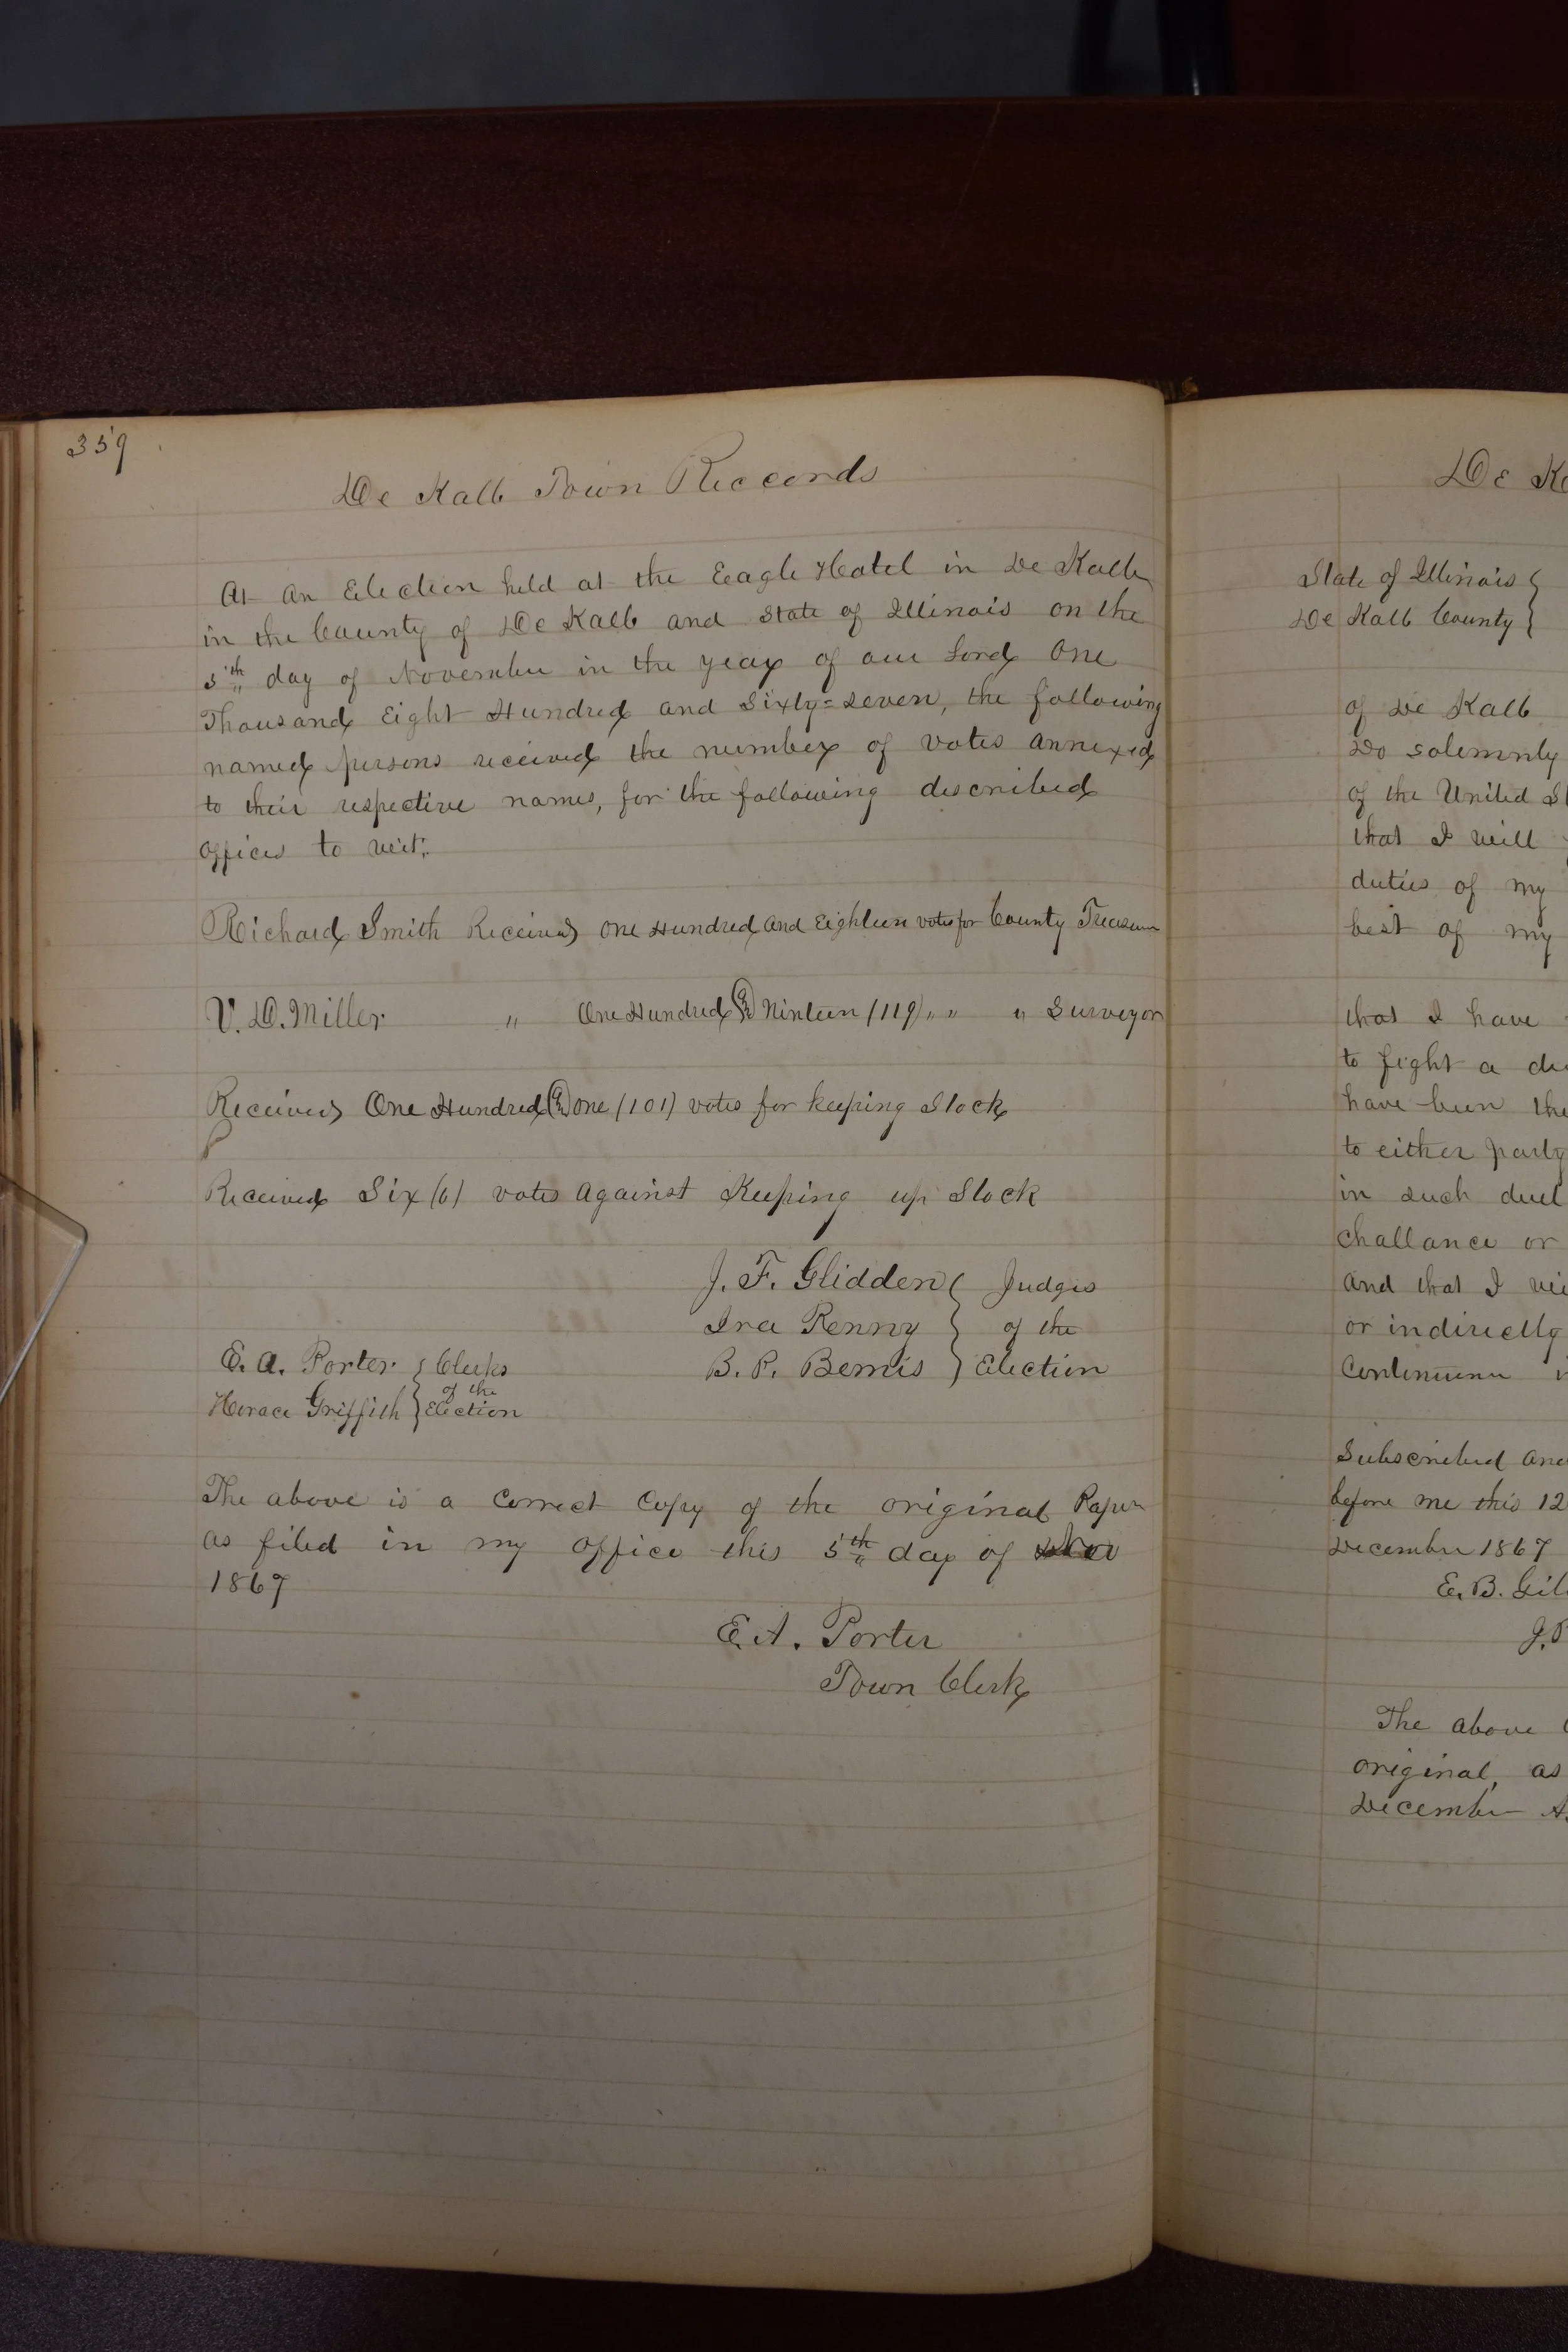 359
De Kalb Town Reccords
At an Election held at the Eeagle Hotel in De Kalb
in the County of De Kalb and State of Illinois on the
5th day of November in the year of our Lord One
Thousand Eight Hundred and Sixty=Seven, the following
named persons received the number of votes annexed
to their respective names, for the following described
offices to wit;
Richard Smith Received One Hundred and Eighteen votes for County Treasurer
V. D. Miller " One Hundred & Ninteen (119) " " " Surveyor
Received One Hundred & One (101) votes for keeping Stock
Received Six (6) votes against Keeping up Stock
J. F. Glidden } Judges
Ira Renny } of the
B. P. Bemis } Election
E. A. Porter } Clerks
of the
Horace Griffith } Election
The above is a Correct Copy of the original Paper
as filed in my office this 5th day of Nov
1867
E. A. Porter
Town Clerk
De K
State of Illinois {
De Kalb County }
of De Kalb
Do solemnly
of the United St
that I will
duties of my
best of my
that I have
to fight a du
have been the
to either party
in such duel
challance or
and that I wi
or indirectly
Continuence i
Subscribed and
before me this 12
December 1867
E. B. Gil
J. P
The above C
original, as
December A.